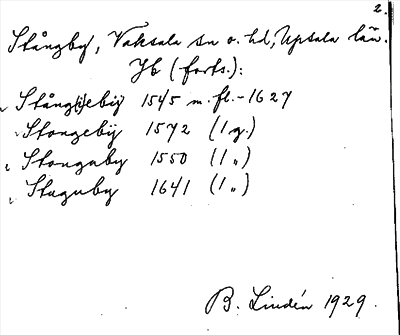 2.
Stångby, Vaksala sn o. hd, Upsala län.
Jb (forts.):
Stångeby 1545 m. fl. - 1627
Stongebÿ 1572 (1 g.)
Stongaby 1550 (1 „)
Staguby 1641 (1 „)
B. Lindén 1929.